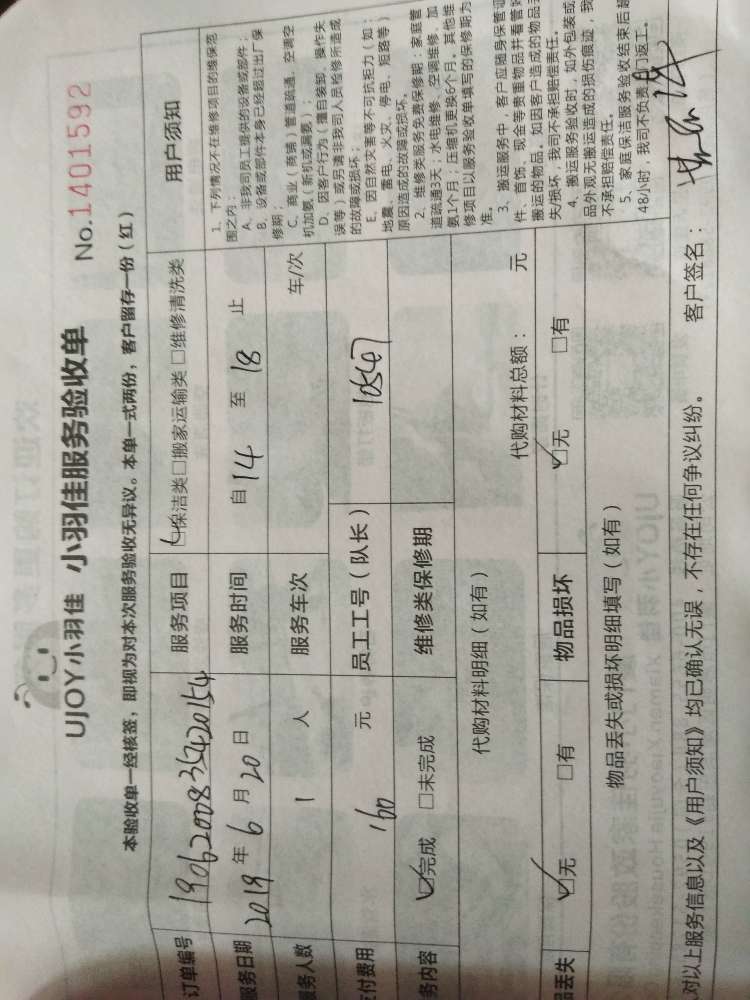 UJOY小羽佳 小羽佳服务验收单
No.1401592
本验收单一经核签，即视为对本次服务验收无异议。本单一式两份，客户留存一份（红）
订单编号 服务项目 ☑保洁类□搬家运输类□维修清洗类
服务日期 2019年6月20日 服务时间 自14至18止
服务人数 1人 服务车次 车/次
付费用 160元 员工工号（队长） 10547
务内容 ☑完成 □未完成 维修类保修期
代购材料明细（如有） 代购材料总额： 元
品丢失 ☑无 □有 物品损坏 ☑无 □有
物品丢失或损坏明细填写（如有）
用户须知
1、下列情况不在维修项目的维保范
围之内：
A、非我司员工提供的设备或部件；
B、设备或部件本身已经超过出厂保
修期；
C、商业（商铺）管道疏通，空调空
机加氨（新机或漏氨）；
D、因客户行为（擅自装卸、操作失
误等）或另请非我司人员检修所造成
的故障或损坏；
E、因自然灾害等不可抗拒力（如：
地震、雷电、火灾、停电、短路等）
原因造成的故障或损坏。
2、维修类服务免费保修期：家庭管
道疏通3天；水电维修、空调维修、加
氨1个月；压缩机更换6个月。其他维
修项目以服务验收单填写的保修期为
准。
3、搬运服务中，客户应随身保管证
件、首饰、现金等贵重物品并看管好
搬运的物品。如因客户造成的物品丢
失/损坏，我司不承担赔偿责任。
4、搬运服务验收时，如外包装或
品外观无搬运造成的损伤痕迹，我
不承担赔偿责任。
5、家庭保洁服务验收结束后超
48小时，我司不负责上门返工。
对以上服务信息以及《用户须知》均已确认无误，不存在任何争议纠纷。 客户签名：